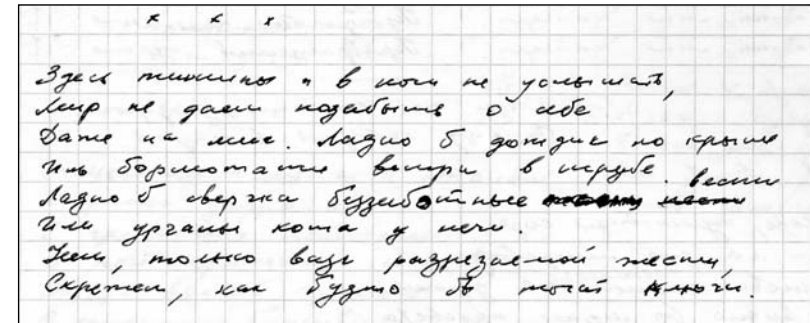 * * *
Здесь тишины и в ночи не услышать,
Мир не дает позабыть о себе
Даже на миг. Ладно б дождик по крыше
Иль бормотание ветра в трубе.
Ладно б сверчка беззаботные вести
Или урчанье кота у печи.
Нет, только визг разрезаемой жести,
Скрежет, как будто бы точат ключи.